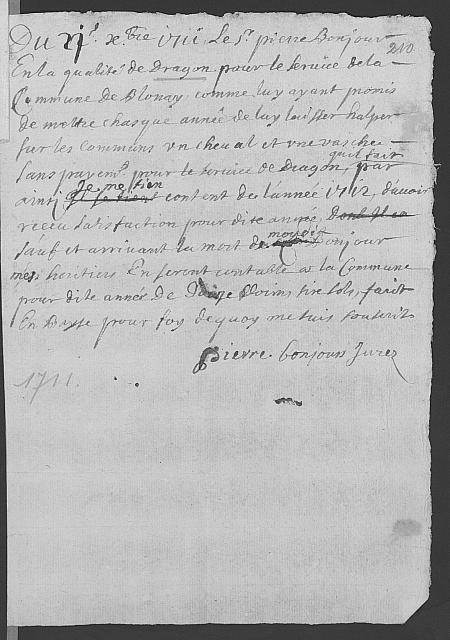 Du xj.e xbre 1711 Le Sr. pierre Bonjour
210
En la qualité de Dragon pour le Service de la
Commune de Blonay comme luy ayant promis
de mettre chasque année de luy laisser halper
sur les Communs un cheval et une vasche
sans payemt. pour le service de Dragon, quil fait par
ainsi Je me tien content de l'année 1712, d'avoir
receu satisfaction pour dite année
sauf et arrivant la mort de moydit Bonjour
mes heritiers En seront contable a la Commune
pour dite année de sols, fait
En pour foy dequoy me suis souscrit
Pierre Bonjour Jurez
1711.